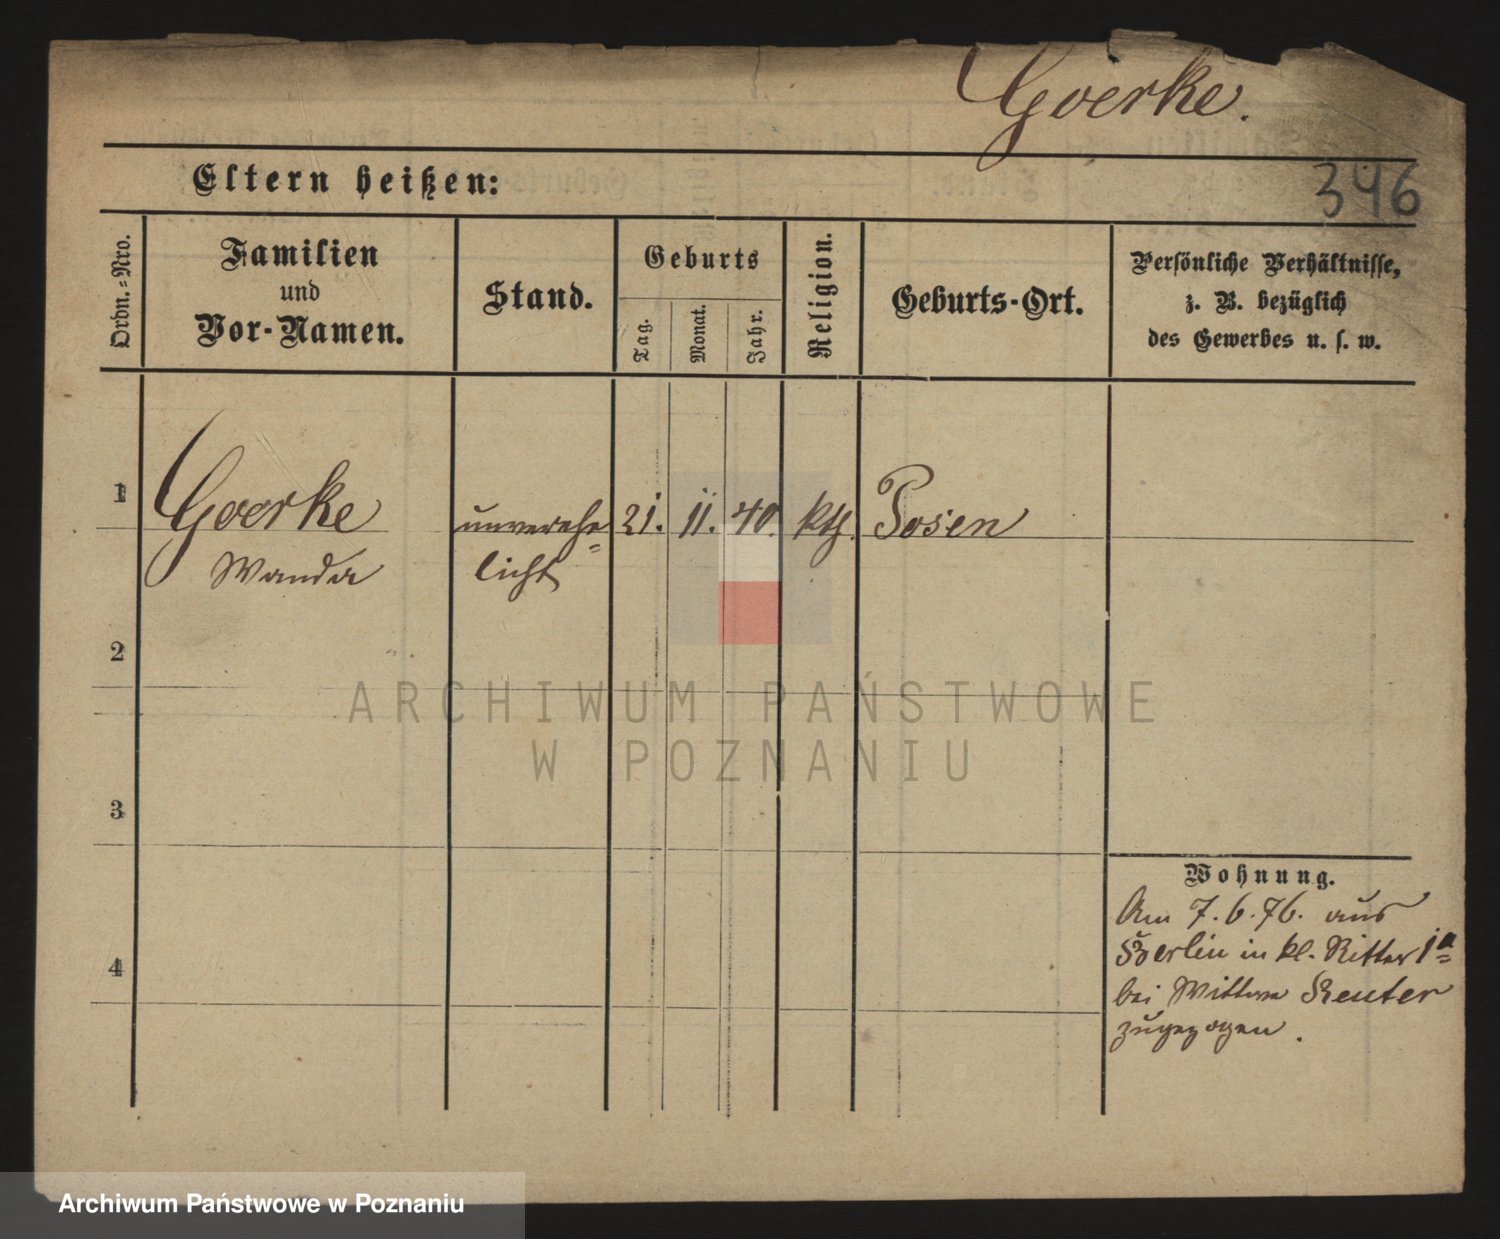 Goerke.
Eltern heißen:
346
Ordn.-Nro.
Familien
und
Vor-Namen.
Stand.
Geburts
Tag.
Monat.
Jahr.
Religion.
Geburts-Ort.
Persönliche Verhältnisse,
z. B. bezüglich
des Gewerbes u. s. w.
1
Goerke
Wanda
unverehe=
licht
21.
11.
40.
kth.
Posen
2
3
4
Wohnung.
Am 7.6.76. aus
Berlin in kl. Ritter 1a
bei Wittwe Reuter
zugezogen.
ARCHIWUM PAŃSTWOWE
W POZNANIU
Archiwum Państwowe w Poznaniu